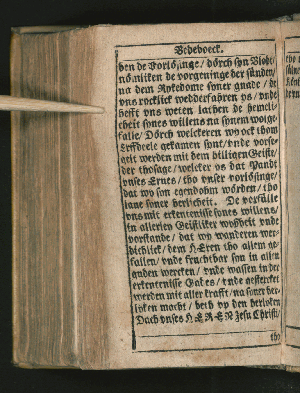 Bedeboeck.
ben de Vorlösinge / dörch syn Blodt
nömliken de vorgevinge der sünden /
na dem Rykedome syner gnade / de
vns rycklick wedderfaren ys / vnde
hefft vns weten lathen de hemeli-
cheit synes willens na synem wolge-
falle / Dörch welckeren wy ock thom
Erffdeele gekamen synt / vnde vorse-
gelt werden mit dem hilligen Geiste /
der thosage / welcker ys dat Pandt
vnses Erues / tho vnser vorlösinge /
dat wy syn egendohm wörden / tho
laue syner herlicheit. De voruülle
vns mit erkentenisse synes willens /
in allerley Geistliker wyßheit vnde
vorstande / dat wy wanderen wer-
dichlick / dem HEren tho allem ge-
fallen / vnde fruchtbar syn in allen
guden wercken / vnde wassen in der
erkentenisse Gades / vnde gestercket
werden mit aller krafft / na syner her-
liken macht / beth vp den herliken
Dach vnses HEREN Jesu Christi /
tho